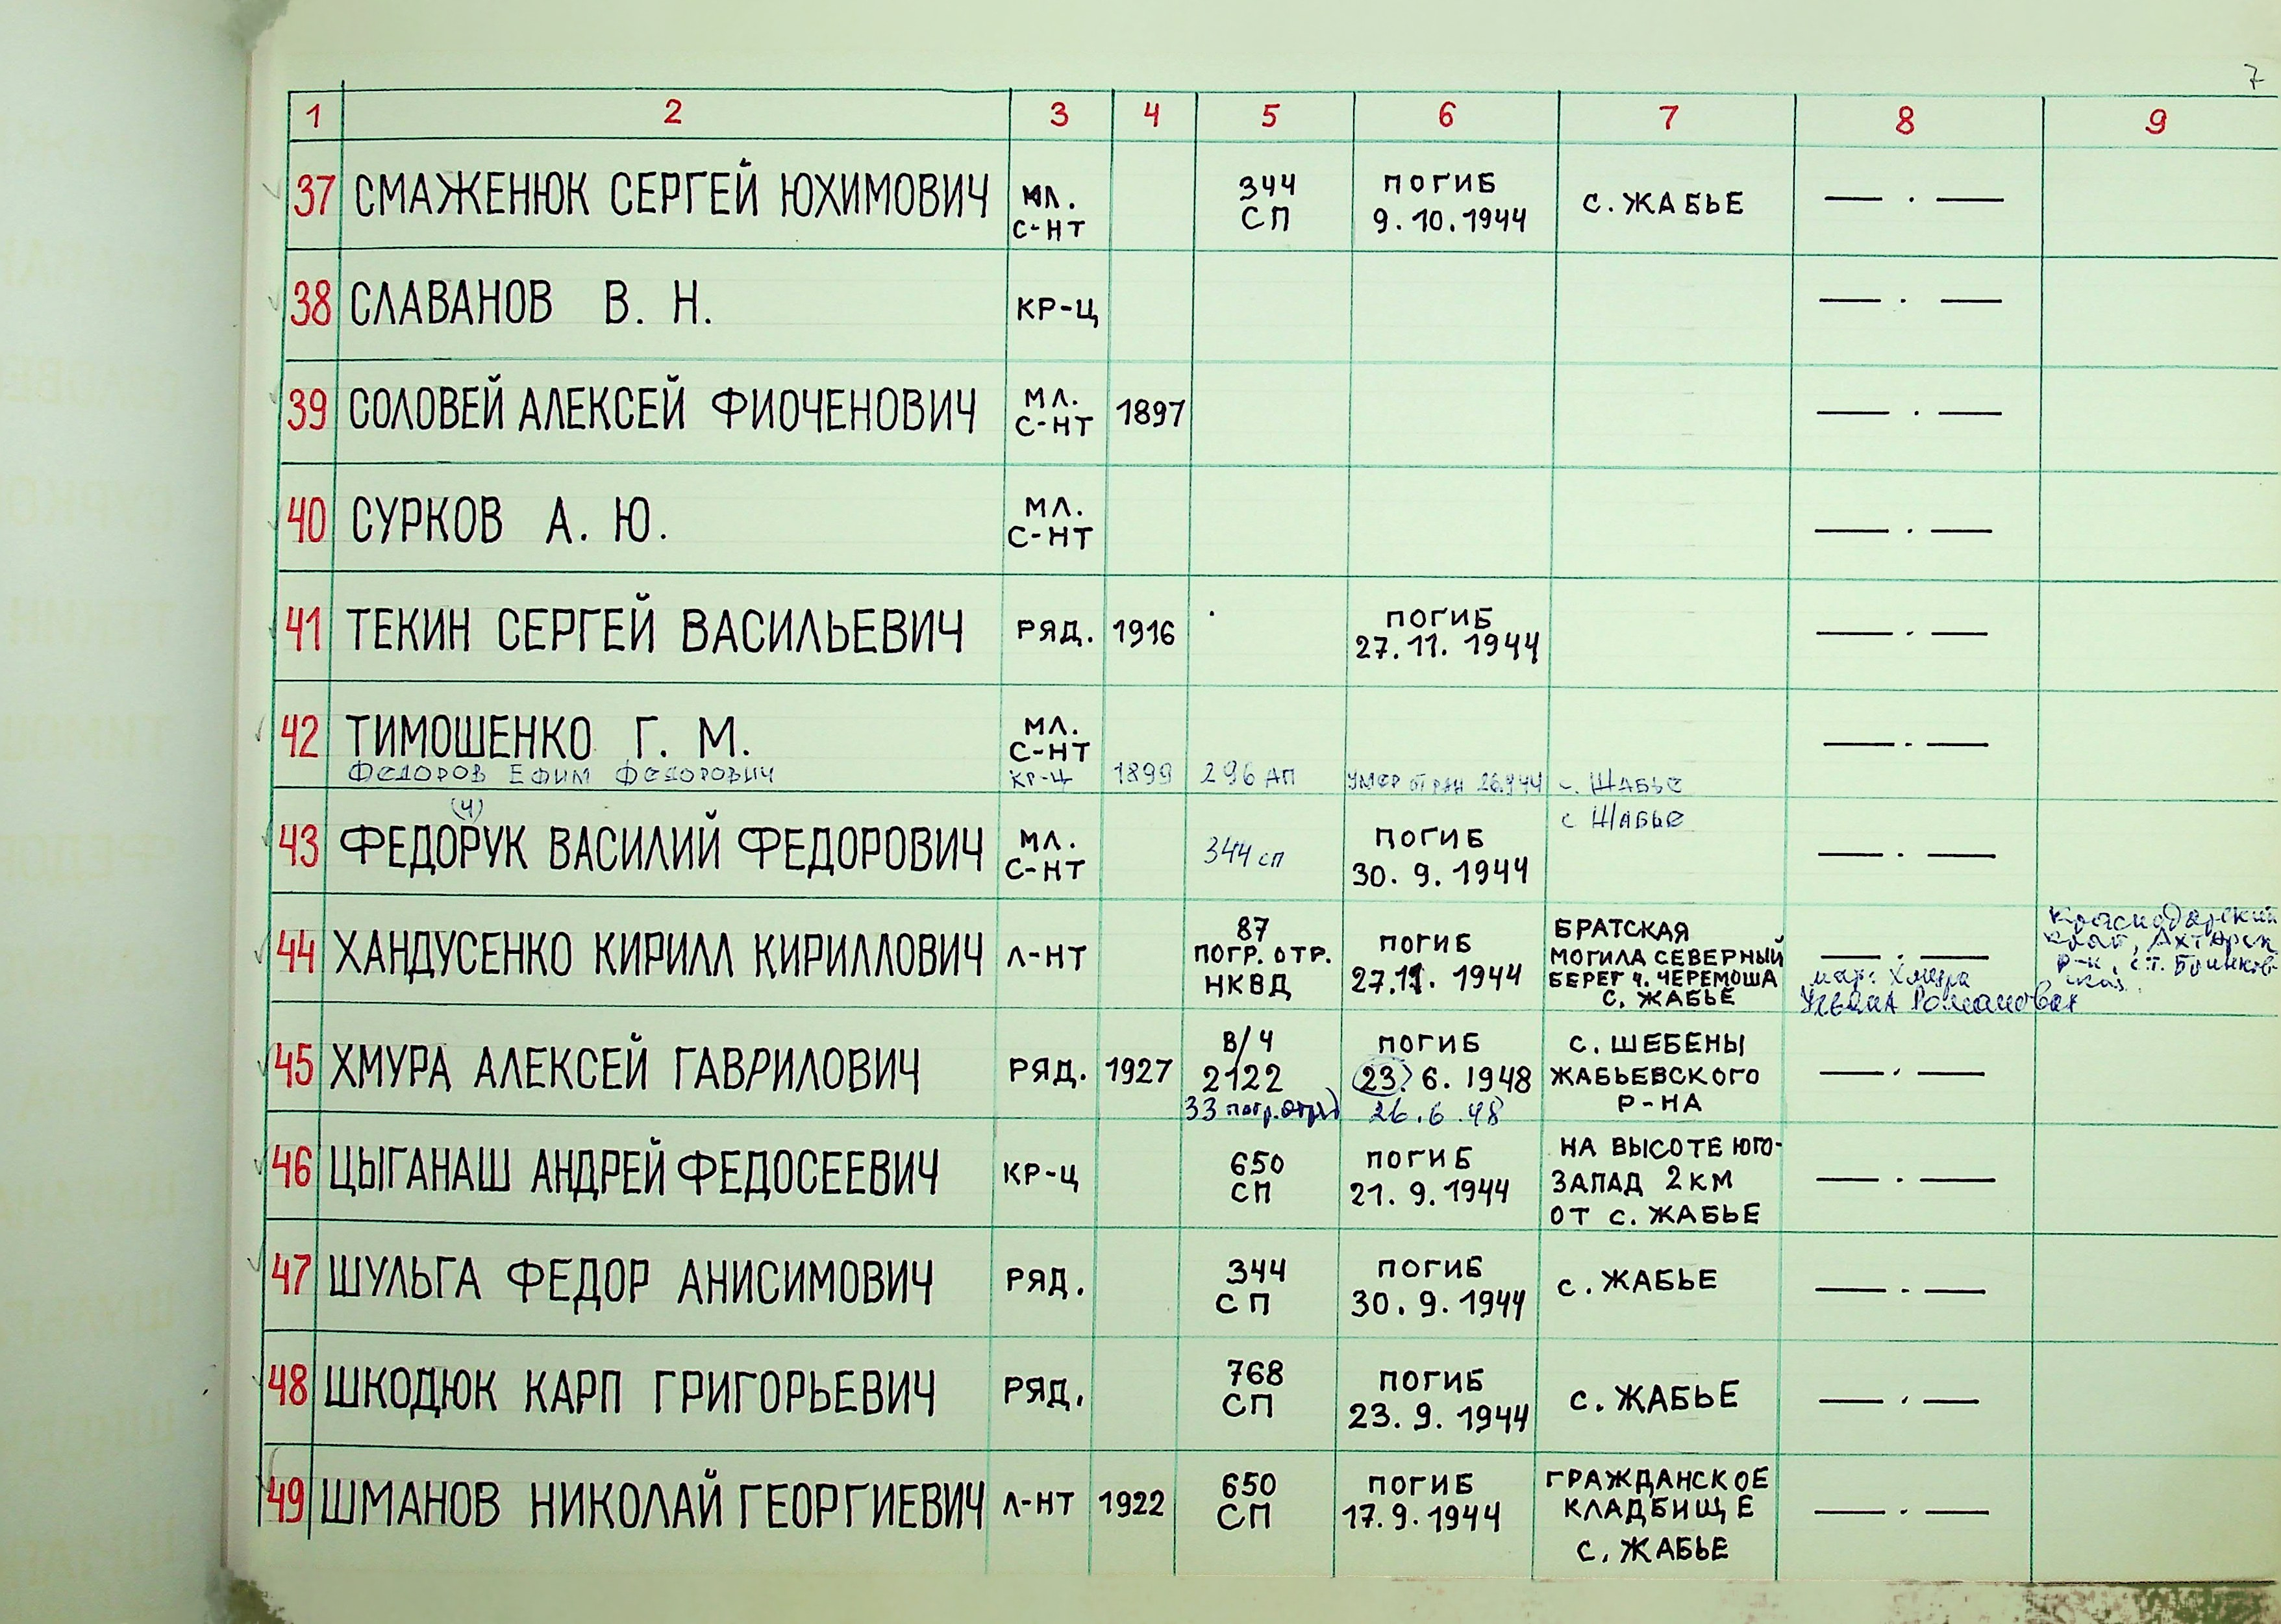 7
1 2 3 4 5 6 7 8 9
37 СМАЖЕНЮК СЕРГЕЙ ЮХИМОВИЧ МЛ. С-НТ 344 СП ПОГИБ 9.10.1944 С. ЖАБЬЕ — . —
38 СЛАВАНОВ В. Н. КР-Ц — . —
39 СОЛОВЕЙ АЛЕКСЕЙ ФИОЧЕНОВИЧ МЛ. С-НТ 1897 — . —
40 СУРКОВ А. Ю. МЛ. С-НТ — . —
41 ТЕКИН СЕРГЕЙ ВАСИЛЬЕВИЧ РЯД. 1916 ПОГИБ 27.11.1944 — . —
42 ТИМОШЕНКО Г. М. МЛ. С-НТ — . —
ФЕДОРОВ ЕФИМ ФЕДОРОВИЧ КР-Ц 1899 296 АП УМЕР ОТ РАН 26.9.44 с. ЖАБЬЕ
(Ч)
43 ФЕДОРУК ВАСИЛИЙ ФЕДОРОВИЧ МЛ. С-НТ 344 сп ПОГИБ 30.9.1944 с ЖАБЬЕ — . —
44 ХАНДУСЕНКО КИРИЛЛ КИРИЛЛОВИЧ Л-НТ 87 ПОГР. ОТР. НКВД ПОГИБ 27.11.1944 БРАТСКАЯ МОГИЛА СЕВЕРНЫЙ БЕРЕГ Ч. ЧЕРЕМОША С. ЖАБЬЕ — . —
мат: Хмура Ульяна Романовна Краснодарский край, Ахтарск р-н, ст.
45 ХМУРА АЛЕКСЕЙ ГАВРИЛОВИЧ РЯД. 1927 В/Ч 2122 33 погр. отряд ПОГИБ 23.6.1948 26.6.48 С. ШЕБЕНЫ ЖАБЬЕВСКОГО Р-НА — . —
46 ЦЫГАНАШ АНДРЕЙ ФЕДОСЕЕВИЧ КР-Ц 650 СП ПОГИБ 21.9.1944 НА ВЫСОТЕ ЮГО-ЗАПАД 2 КМ ОТ С. ЖАБЬЕ — . —
47 ШУЛЬГА ФЕДОР АНИСИМОВИЧ РЯД. 344 СП ПОГИБ 30.9.1944 С. ЖАБЬЕ — . —
48 ШКОДЮК КАРП ГРИГОРЬЕВИЧ РЯД. 768 СП ПОГИБ 23.9.1944 С. ЖАБЬЕ — . —
49 ШМАНОВ НИКОЛАЙ ГЕОРГИЕВИЧ Л-НТ 1922 650 СП ПОГИБ 17.9.1944 ГРАЖДАНСКОЕ КЛАДБИЩЕ С. ЖАБЬЕ — . —